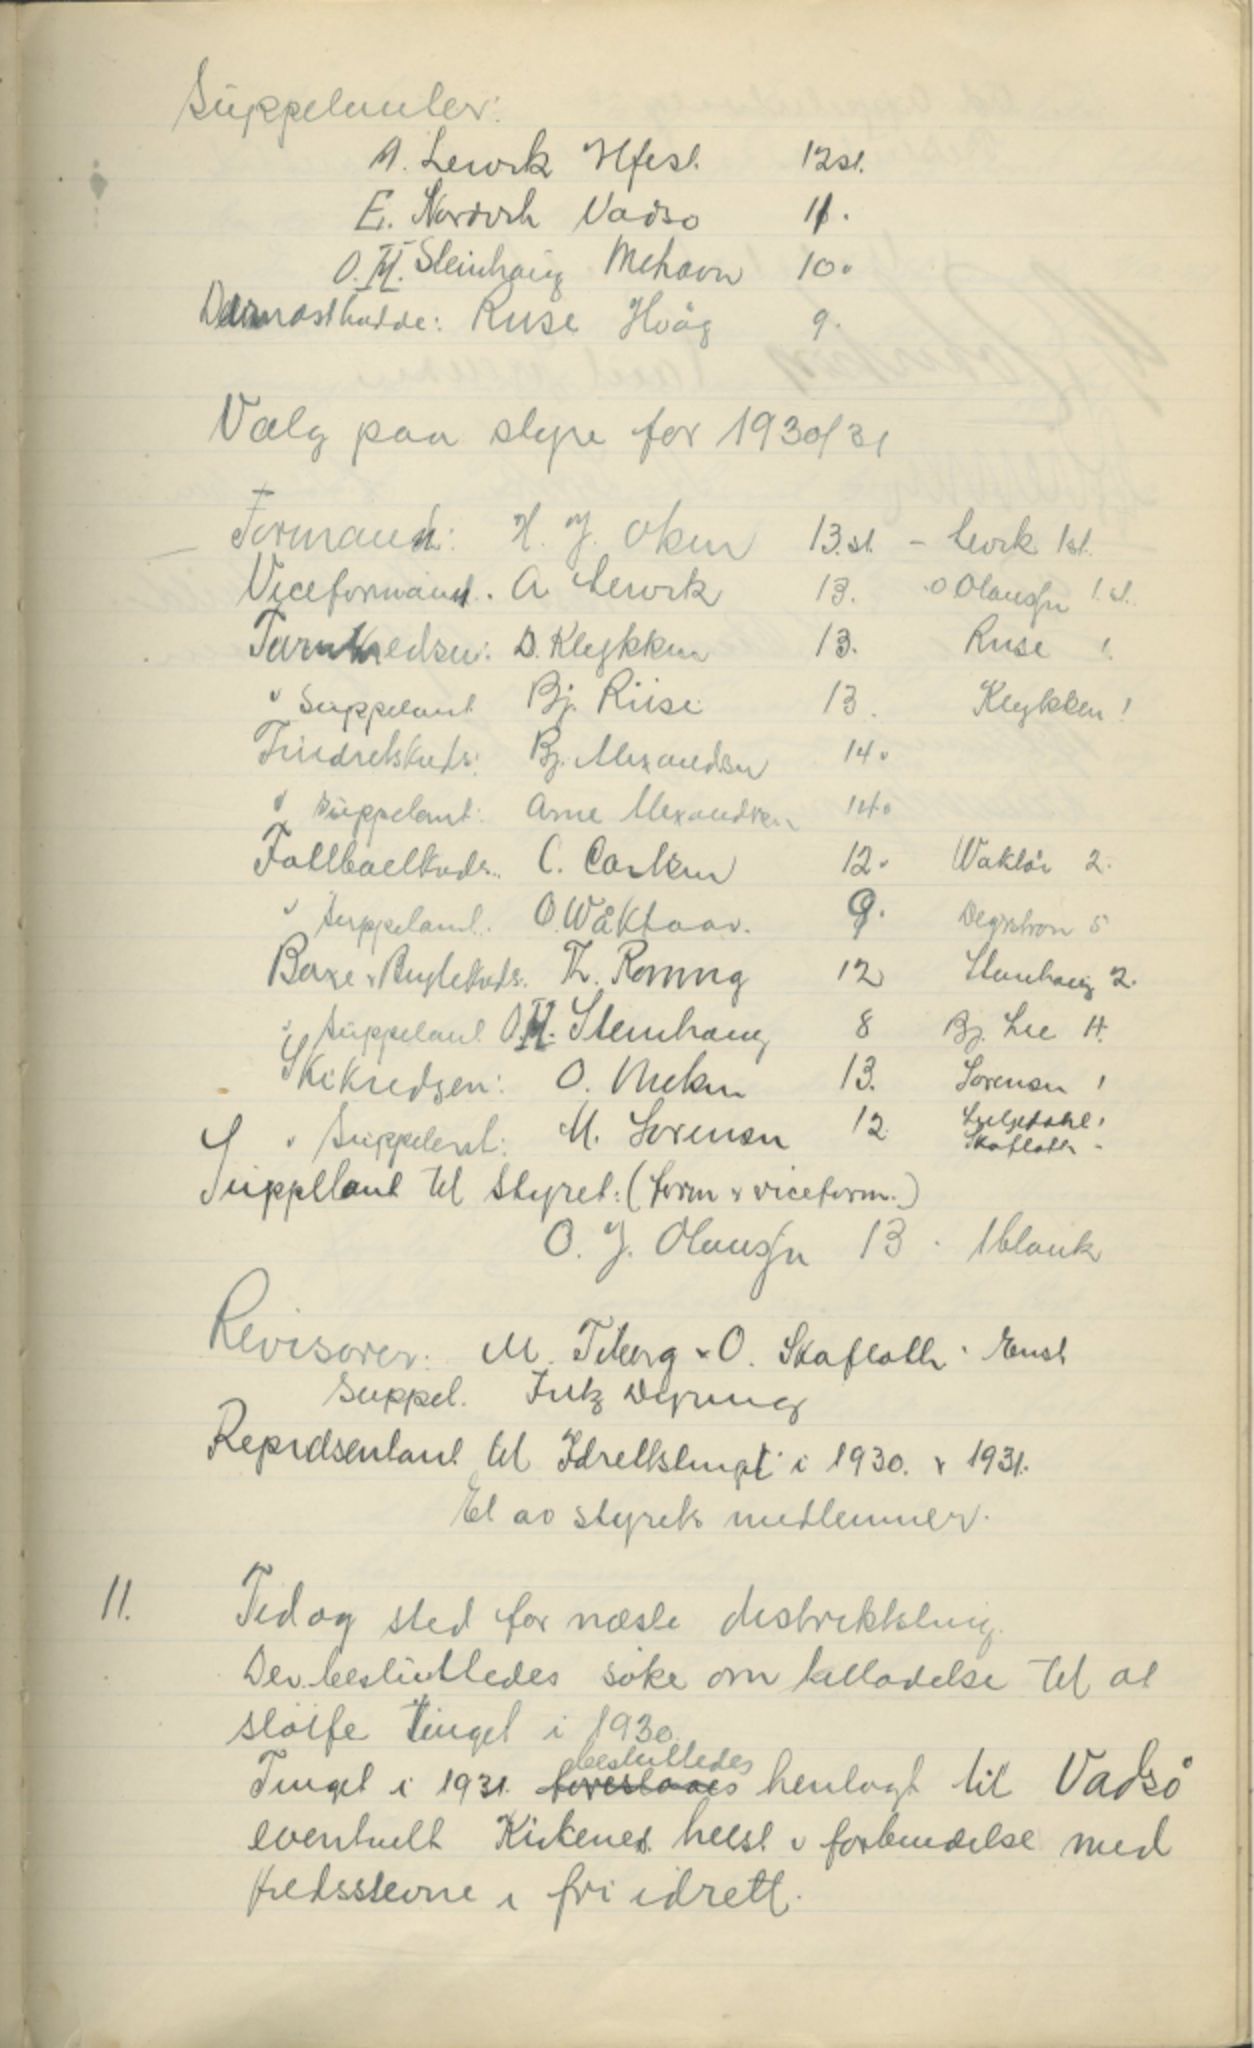 Suppelanter:
A. Lervik Hfest. 12 st.
E. Nordvik Vadsø 11.
O. H. Steinhaug Mehavn 10.
Dernæst hadde: Riise Hvåg 9.
Valg paa styre for 1930/31
Formand: H. J. Oken 13. st. - Lervik 1 st.
Viceformand. A Lervik 13. O Olaussen 1 st.
Turnkredsen: D. Kleykken 13. Riise 1.
" Suppelant Bj. Riise 13. Kleykken 1
Friidretskreds: Bj. Alexandsen 14.
" Suppelant: Arne Alexandsen 14.
Fotballkreds. C. Carlsen 12. Waktør 2.
" Suppelant. O. Wåktaar. 9. Degstrøm 5
Bokse & Brytekreds. Th. Ronning 12 Steinhaug 2.
" Suppelant O. H. Steinhaug 8 Bj. Lie 4.
Skikredsen: O. Meken 13. Sorensen 1
" Suppelant: M. Sorensen 12. Liljedahl 1
Skafloth -
Suppelant til styret: (form & viceform.)
O. J. Olaussen 13. 1 blank
Revisorer: M. Tiberg & O. Skafloth. Enst
Suppel. Fritz
Repræsentant til Idrettstinget i 1930. & 1931.
Et av styrets medlemmer.
11. Tid og sted for næste distriktsting.
Der besluttedes søke om tillatelse til at
sløife tinget i 1930.
besluttedes
Tinget i 1931. foreslaaes henlagt til Vadsø
eventuelt Kirkenes helst i forbindelse med
kredsstevne i fri idrett.